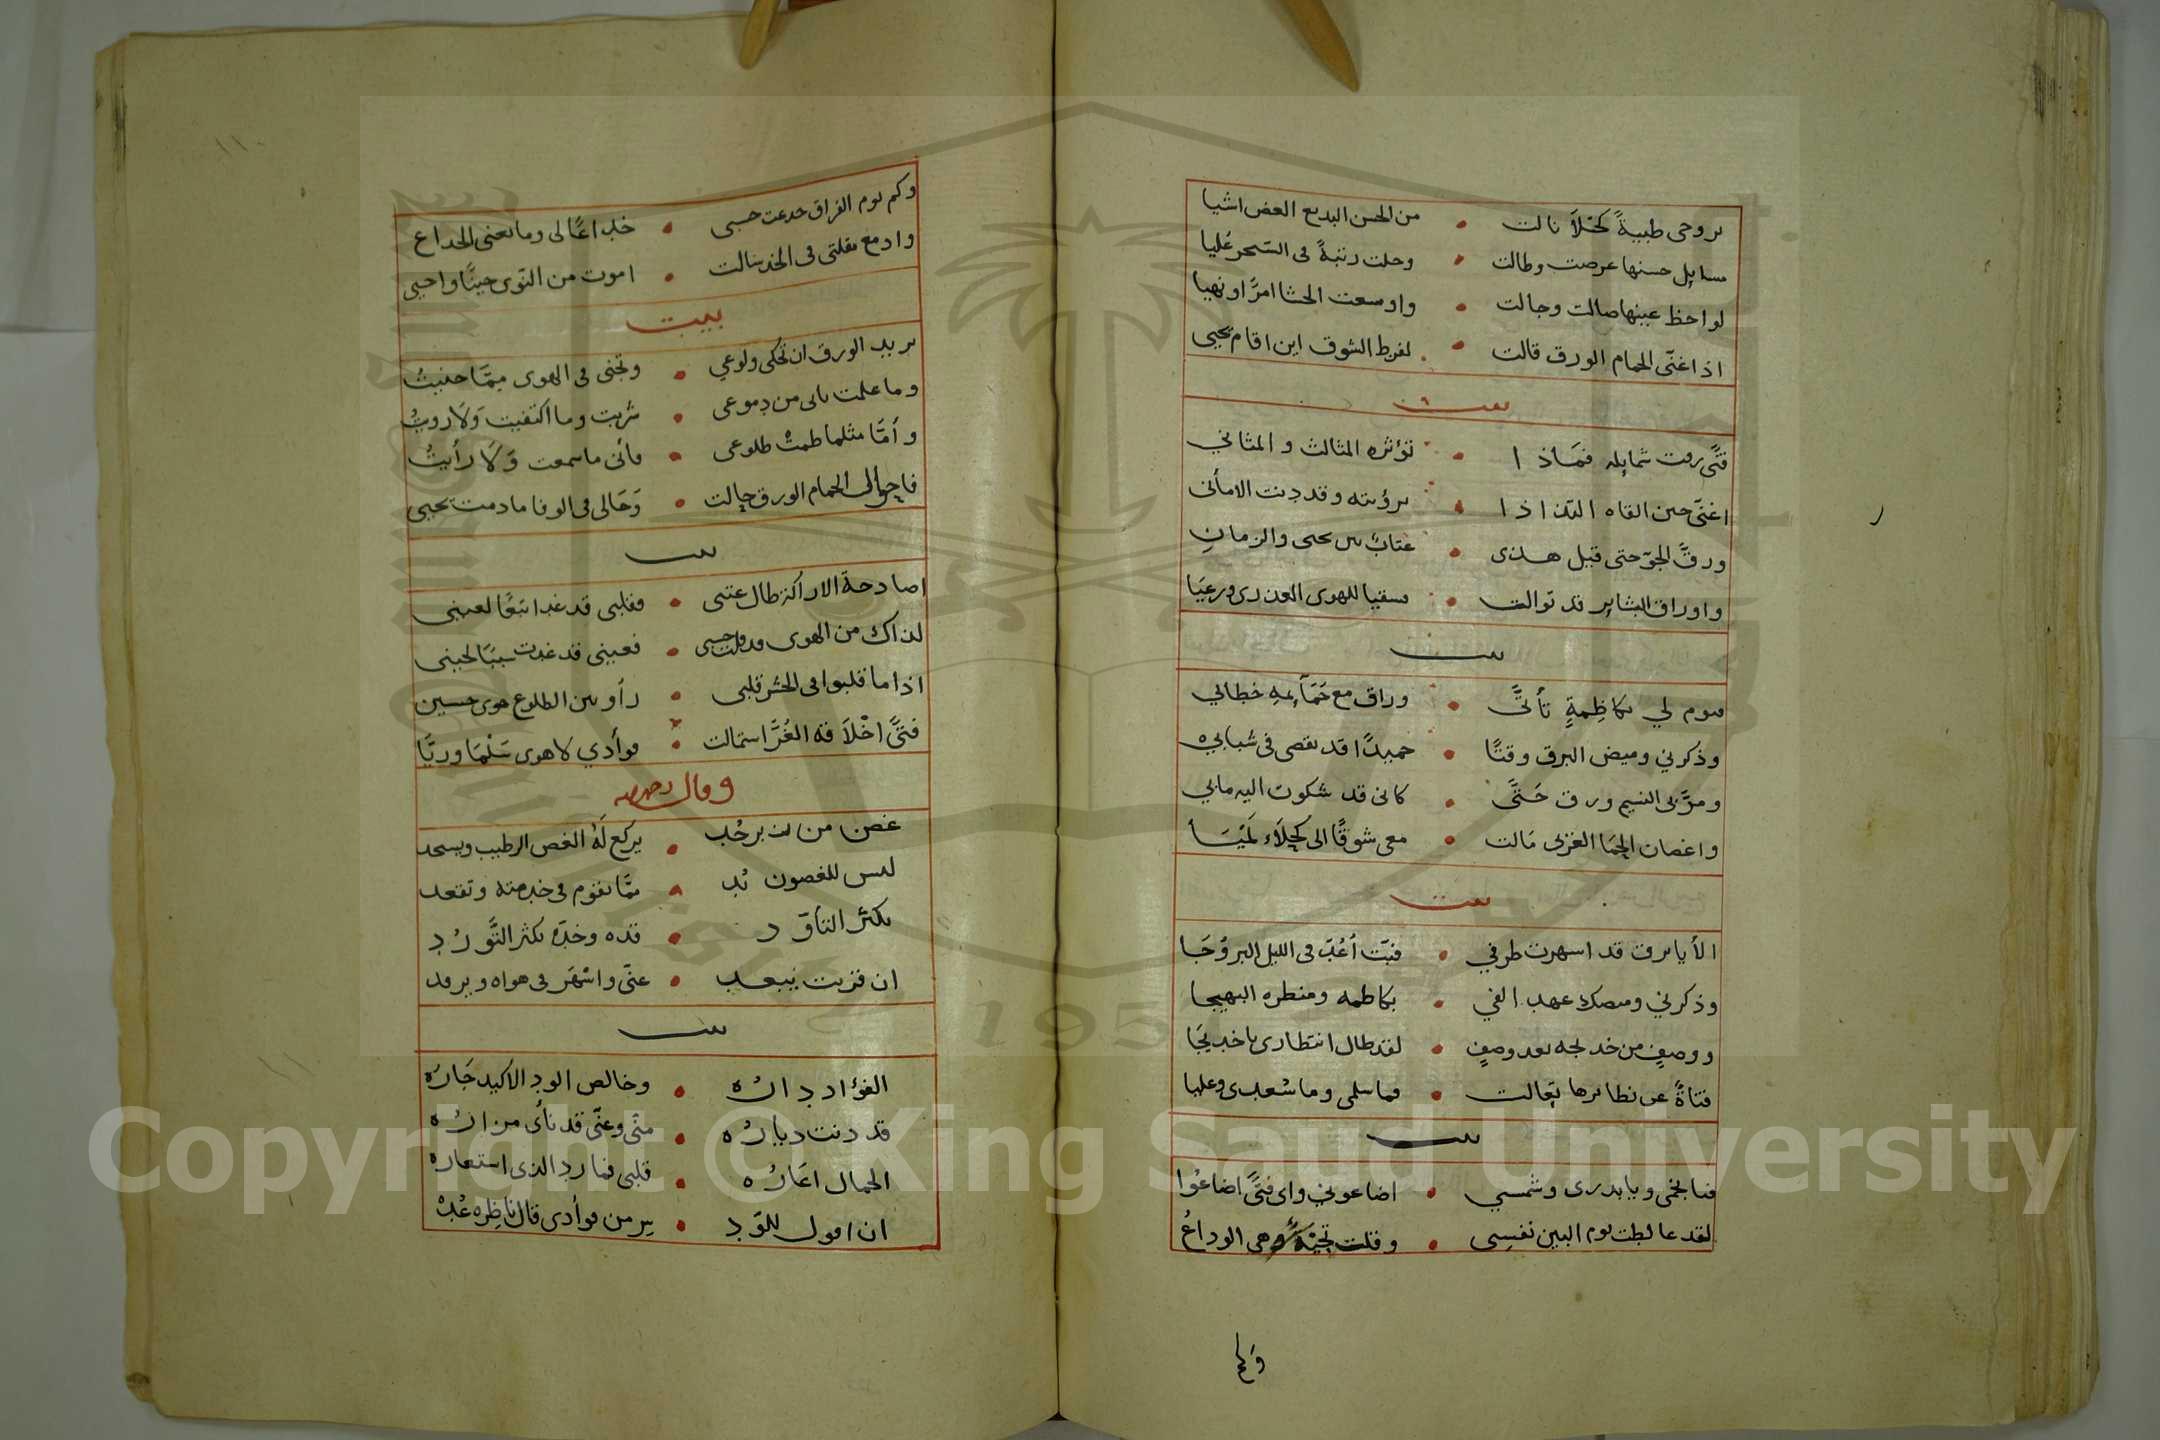 بروحى ظبيةً كحلاً نالت • من الحسن البديع الغض اشيا
مسايل حسنها عرضت وطالت • وحلت رتبةً فى السّحر عُليا
لواحظ عينها صالت وجالت • واوسعت الحشا امرًا ونهيا
اذا غنّى الحمام الورق قالت • لفرط الشوق اين اقام يحيى
بيت
فتًى رقت شمايله فمَاذا • تؤثره المثالث والمثاني
اغنّى حين القاه التذاذا • برؤيته وقد دنت الامانى
ورقّ الجوّ حتى قيل هذى • عتابٌ بين يحيى والزمانِ
واوراق البشاير قد توالت • فسقيا للهوى العذرى ورعيَا
بيت
وذكرني وميض البرق وقتًا • حميدًا قد تقضى فى شبابي
ومرّ بى النسيم ورق حَتَّى • كانى قد شكوت اليه مابي
واغصان الحِمَا الغربى مَالت • معى شوقًا الى كحلاَء لَمْيَا
بيت
الا يا برق قد اسهرت طرفي • فبتّ أعُدّ فى الليل البروُجَا
وذكرني وميضك عهد الفي • بكاظمه ومنظره البهيجا
ووصفٍ من خديجه بعد وصفٍ • لقد طال انتظارى يا خديجَا
فتاةً عن نظايرها تعالت • فما سلمى وما سُعدى وعليا
بيت
فيا نجمى ويا بدرى وشمسي • اضاعونى واى فتًى اضاعُوا
لقد غالطت يوم البين نفسِى • وقلت تحيّة وهى الوداعُ
وكم
وكم يوم الفراق خدعت حسى • خداعًا لى وما يغنى الخداع
وادمع مقلتى فى الخد سالت • اموت من النّوى حينًا واحيى
بيت
يريد الورق ان تحكى ولوعي • وتجنى فى الهوى ممّا جنيتُ
وما علمت بانى من دموعى • شربت وما اكتفيت وَلَا رويتُ
وأمّا مثلما طمتْ طلوعى • فأنى ما سمعت وَلَا رأيتُ
فاحوال الحمام الورق حالت • وَحَالى فى الوفا مادمت يحيى
بيت
اصادحة الاراكة طال عتبى • فقلبى قد غدا تبعًا لعينى
لذاك من الهوى قد قلت وحسبى • فعينى قد غدت سببًا لحينى
اذا ما قلبوا فى الحشر قلبى • رأو بين الطلوع هوى حسين
فتًى اخْلَاقه الغُرَّ استمالت • فوأدي لا هوى سَلْمَا وريَّا
بيت
وقال رحمه الله
يركع لَهُ الغصن الرطيب ويسجد
ليس للغصون نُد • ممّا تقوم فى خدمته وتقعد
يكثر التأوّد • قده وخدّه يكثر التَّورُد
ان قربت يبعد • عنّى واسْهَر فى هواه ويرقد
بيت
الفؤاد دارُه • وخالص الود الاكيد جَارُه
قد دنت ديارُه • منّى وعنّى قد نأى مزارُه
الجمال اعَارُه • قلبى فما رد الذى استعاره